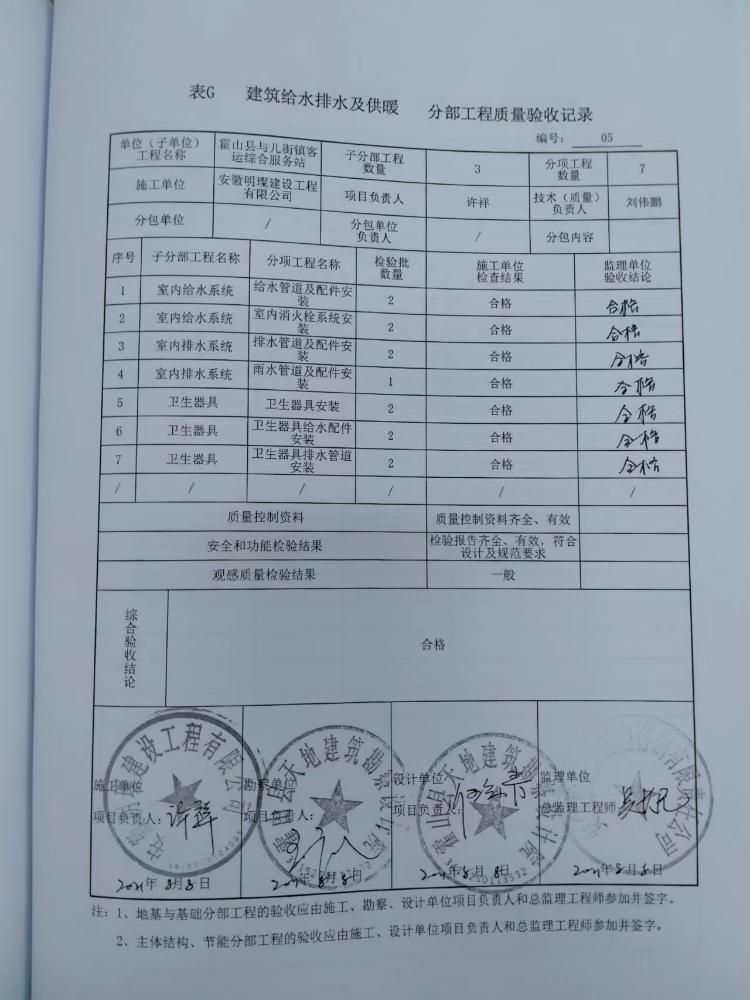 表G 建筑给水排水及供暖 分部工程质量验收记录
编号： 05
单位（子单位）工程名称 霍山县与儿街镇客运综合服务站 子分部工程数量 3 分项工程数量 7
施工单位 安徽明璨建设工程有限公司 项目负责人 许祥 技术（质量）负责人 刘伟鹏
分包单位 / 分包单位负责人 / 分包内容
序号 子分部工程名称 分项工程名称 检验批数量 施工单位检查结果 监理单位验收结论
1 室内给水系统 给水管道及配件安装 2 合格 合格
2 室内给水系统 室内消火栓系统安装 2 合格 合格
3 室内排水系统 排水管道及配件安装 2 合格 合格
4 室内排水系统 雨水管道及配件安装 1 合格 合格
5 卫生器具 卫生器具安装 2 合格 合格
6 卫生器具 卫生器具给水配件安装 2 合格 合格
7 卫生器具 卫生器具排水管道安装 2 合格 合格
/ / / / / /
质量控制资料 质量控制资料齐全、有效
安全和功能检验结果 检验报告齐全、有效，符合设计及规范要求
观感质量检验结果 一般
综合验收结论 合格
施工单位 勘察单位 设计单位 监理单位
项目负责人：许祥 项目负责人： 项目负责人： 总监理工程师：
建设工程有限公司
霍山县天地建筑勘察设计院
霍山县天地建筑勘察设计院
有限责任公司
2021年8月8日 2021年8月8日 2021年8月8日 2021年8月8日
注：1、地基与基础分部工程的验收应由施工、勘察、设计单位项目负责人和总监理工程师参加并签字。
2、主体结构、节能分部工程的验收应由施工、设计单位项目负责人和总监理工程师参加并签字。